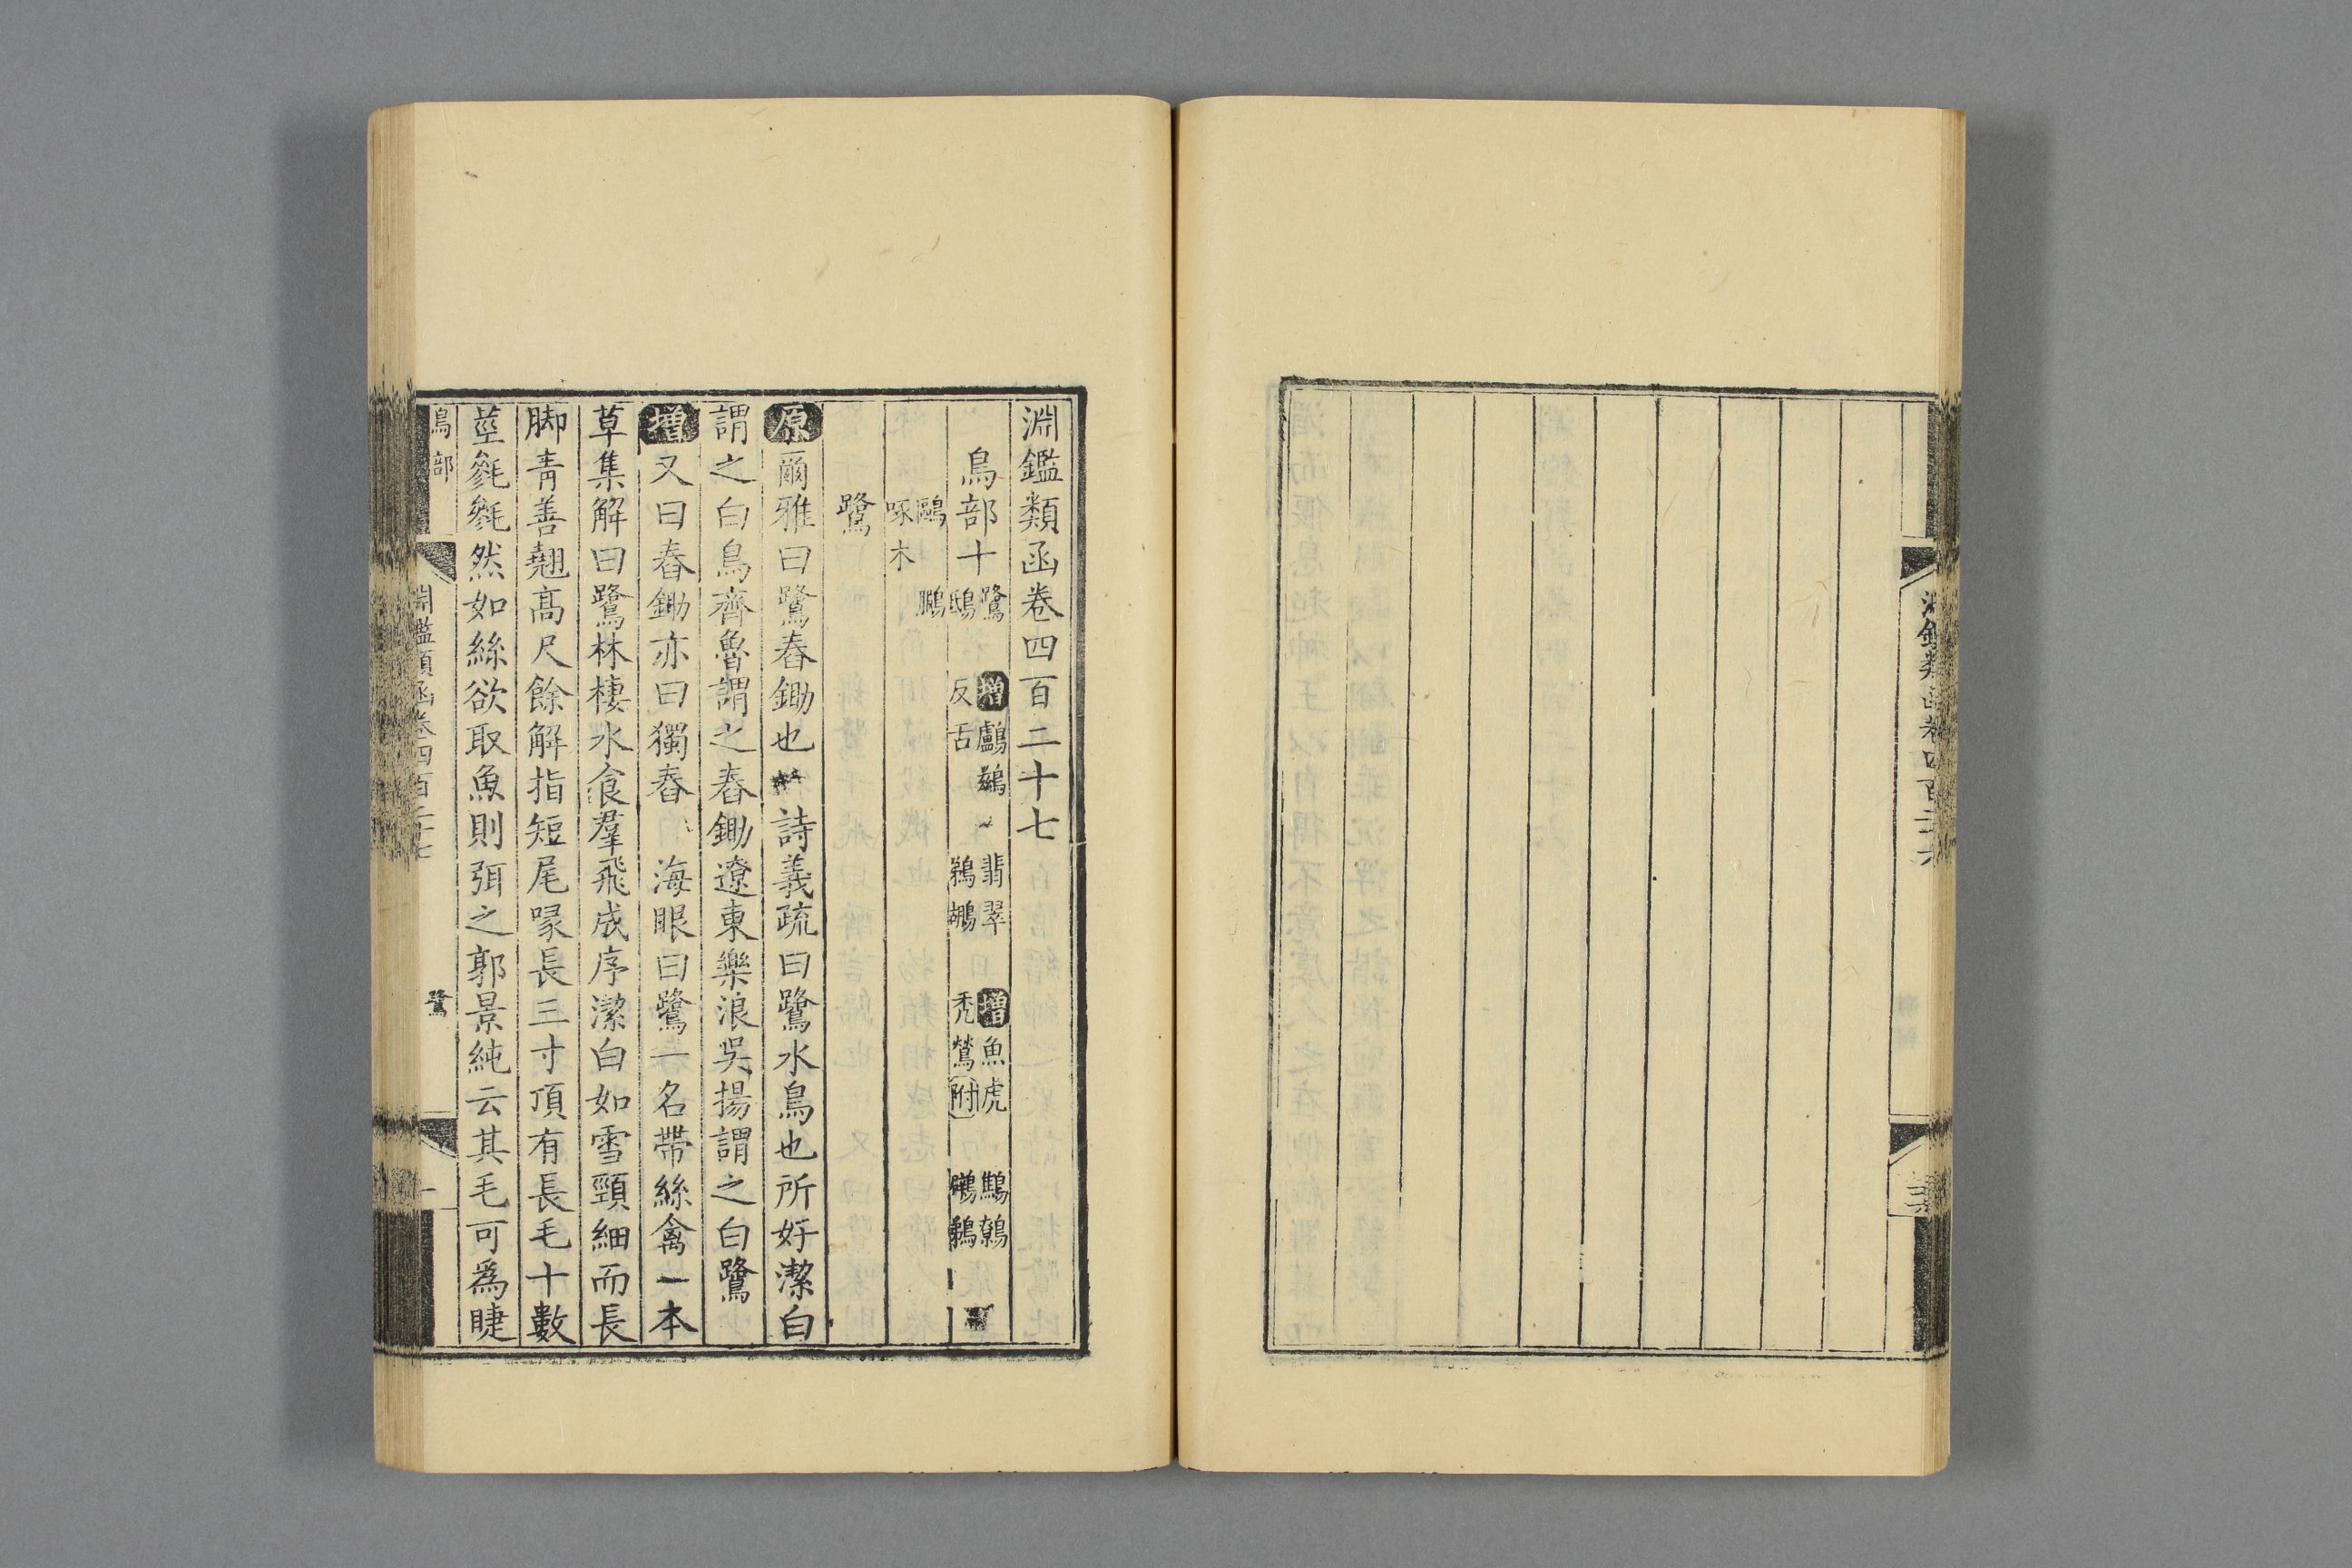 淵鑑類函卷四百二十七
鳥部十 鷺 增鸕鷀 翡翠 增魚虎 鷓鴣
鴟 反舌 鵜鶘 禿鶖附
鷗 鵩
啄木
鷺
原爾雅曰鷺舂鋤也 詩義疏曰鷺水鳥也所好潔白
謂之白鳥齊魯謂之舂鋤遼東樂浪吳揚謂之白鷺
增又曰舂鋤亦曰獨舂 海眼曰鷺一名帶絲禽一本
草集解曰鷺林棲水食羣飛成序潔白如雪頸細而長
脚青善翹高尺餘解指短尾喙長三寸頂有長毛十數
莖毿毿然如絲欲取魚則弭之郭景純云其毛可爲睫
鳥部
淵鑑類函卷四百二十七
鷺
一
淵鑑類函卷四百二十六